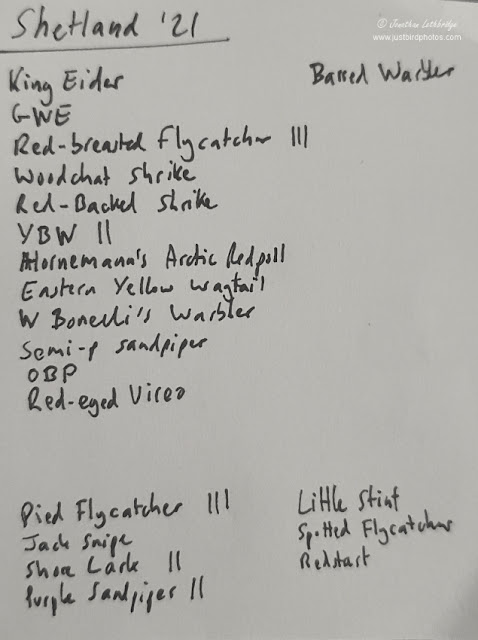 © Jonathan Lethbridge
www.justbirdphotos.com
Shetland '21
King Eider
Barred Warbler
GWE
Red-breasted Flycatcher III
Woodchat Shrike
Red-Backed Shrike
YBW II
Hornemann's Arctic Redpoll
Eastern Yellow Wagtail
W Bonelli's Warbler
Semi-p Sandpiper
OBP
Red-eyed Vireo
Pied Flycatcher III
Jack Snipe
Shore Lark II
Purple Sandpiper II
Little Stint
Spotted Flycatcher
Redstart